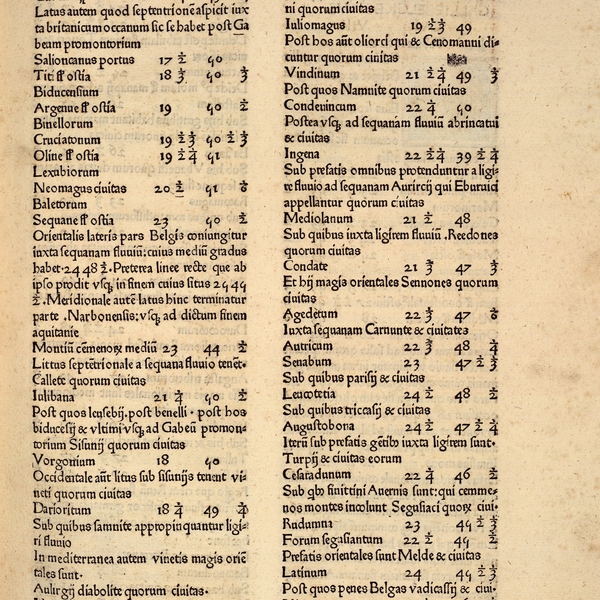 Latus autem quod septentrionē aspicit iux
ta britanicum occanum sic se habet post Ga
beum promontorium
Salioncanus portus 17 ½ 50
Titi ff ostia 18 ⅓ 50 ⅓
Biducensium
Argenue ff ostia 19 50 ½
Binellorum
Cruciatonum 19 ½ ⅓ 50 ½ ⅓
Oline ff ostia 19 ½ ¼ 51
Lexubiorum
Neomagus ciuitas 20 ½ 51 
Baletorum
Sequane ff ostia 23 50 ½
Orientalis lateris pars Belgis coniungitur
iuxta sequanam fluuiū: cuius mediū gradus
habet·24 48 ½. Preterea linee recte que ab
ipso prodit vsq; in finem cuius situs 25 45
½. Meridionale autē latus hinc terminatur
parte . Narbonensis: vsq; ad dictum finem
aquitanie
Montiū cēmenoꝝ mediū 23 44 ½
Littus septētrionale a sequana fluuio tenēt·
Callete quorum ciuitas
Iulibana 21 ¼ 50 ½
Post quos lensebij. post benelli · post hos
biducesij & vltimi vsq; ad Gabeū promon-
torium Sisunij quorum ciuitas
Vorgonium 18 50
Occidentale aūt litus sub sisunijs tenent vi-
neti quorum ciuitas
Darioritum 18 ¼ 49 ¼
Sub quibus samnite appropinquantur ligi-
ri fluuio
In mediterranea autem vinetis magis oriē
tales sunt·
Aulirgij diabolite quorum ciuitas·
ni quorum ciuitas
Iuliomagus 19 ½ ⅓ 49
Post hos aūt oliorci qui & Cenomanni di-
cuntur quorum ciuitas
Vindinum 21 ½ ¼ 49 ⅓
Post quos Namnite quorum ciuitas
Condeuincum 22 ¼ 50
Postea vsq; ad sequanam fluuiū abrincatui
& ciuitas
Ingena 22 ½ ¼ 39 ½ ¼
Sub prefatis omnibus protenduntur a ligi-
re fluuio ad sequanam Aurircij qui Eburuici
appellantur quorum ciuitas
Mediolanum 21 ½ 48
Sub quibus iuxta ligirem fluuiū . Reedones
quorum ciuitas
Condate 21 ⅓ 47 ⅓
Et hij magis orientales Sennones quorum
ciuitas
Agedetum 22 ⅓ 47
Iuxta sequanam Carnunte & ciuitates
Autricum 22 ⅓ 48 ¼
Senabum 23 47 ½ ⅓
Sub quibus parisij & ciuitas
Leucotetia 24 ½ 48 ½
Sub quibus triccasij & ciuitas
Augustobona 24 ½ 47 ½ ¼
Iterū sub prefatis gētibꝰ iuxta ligirem sunt·
Turpij & ciuitas eorum
Cesaradunum 22 ¼ 46 ½
Sub qbꝰ finittini Avernis sunt: qui cemme-
nos montes incolunt Segusiaci quoꝝ ciui-
Rudumna 23 45 ½ ⅓
Forum segasiantum 22 ½ 45 ½
Prefatis orientales sunt Melde & ciuitas
Latinum 24 45 ½ ⅓
Post quos penes Belgas vadicassij & ciui-